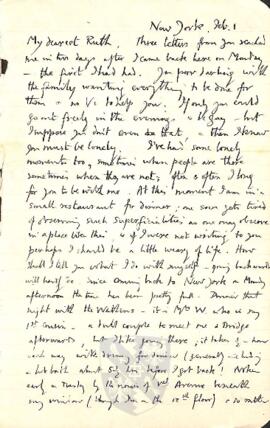 New York. Feb. 1
My dearest Ruth, Three letters from you reached
me in two days after I came back here on Monday
– the first I had had. You poor darling with
the family wanting everything to be done for
them & no Vi to help you. If only you could
go out freely in the evenings & be gay – but
I suppose you don't even do that, & then I know
you must be lonely. I've had some lonely
moments too, sometimes when people are there
sometimes when they are not; & too often I long
for you to be with me. At this moment I am in a
small restaurant for dinner; one soon gets tired
of observing such superficialities as one may observe
in a place like this & if I were not writing to you
perhaps I should be a little weary of life. How
shall I tell you what I do with myself – going backwards
will hardly do. Since coming back to New York on Monday
afternoon the time has been pretty full. Dinner that
night with the – it is Mrs W who is my
1st cousin – a dull couple to meet me & Bridge
afterwards, but I like going there; it takes ¾ hour
each way with driving for dinner (generally including
a hot bath about before I got back! Noten
early & nasty by the noises of 1st Avenue beneath
my window (though I'm on the 12th floor) & so